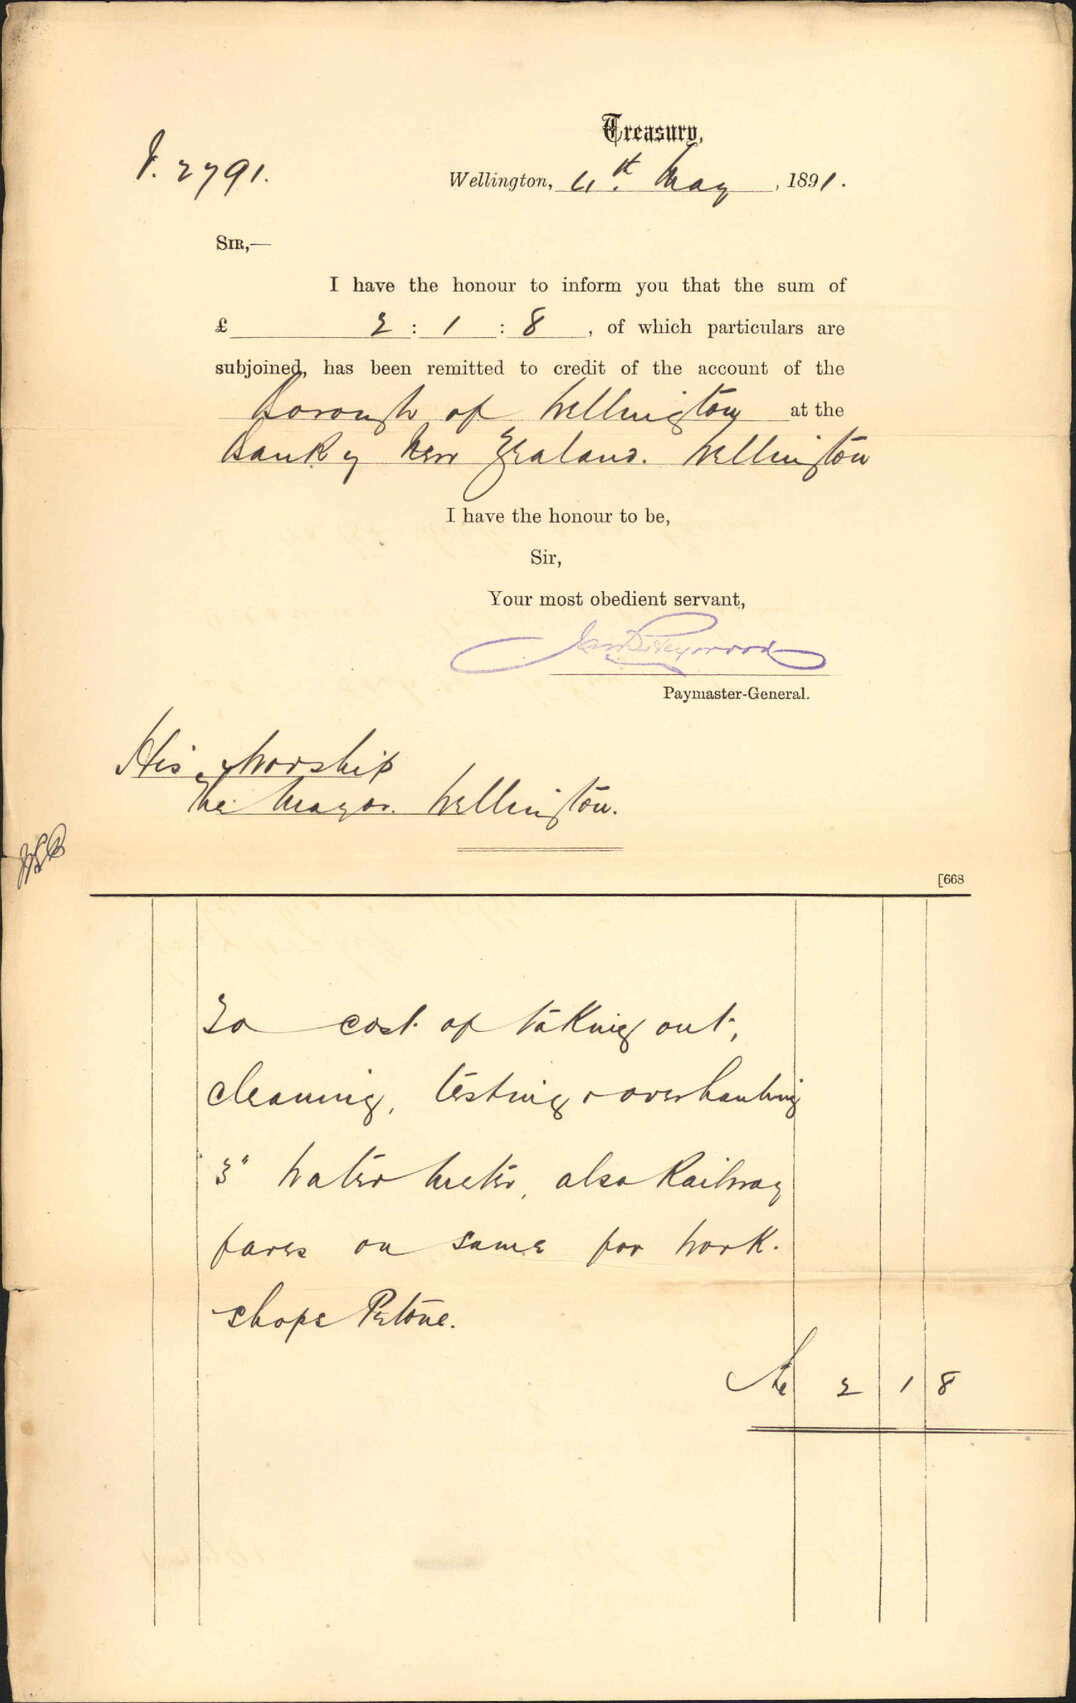 Treasury,
J. 2791.
Wellington, 4th. May, 1891.
SIR,—
I have the honour to inform you that the sum of
£ 2 : 1 : 8, of which particulars are
subjoined, has been remitted to credit of the account of the
Borough of Wellington at the
Bank of New Zealand. Wellington
I have the honour to be,
Sir,
Your most obedient servant,
Jas B Heywood
Paymaster-General.
His Worship
The Mayor. Wellington.
[668
To cost of taking out,
cleaning, testing & overhauling
3" Water Meter, also Railway
fares on same for Work-
shops Petone.
2 1 8